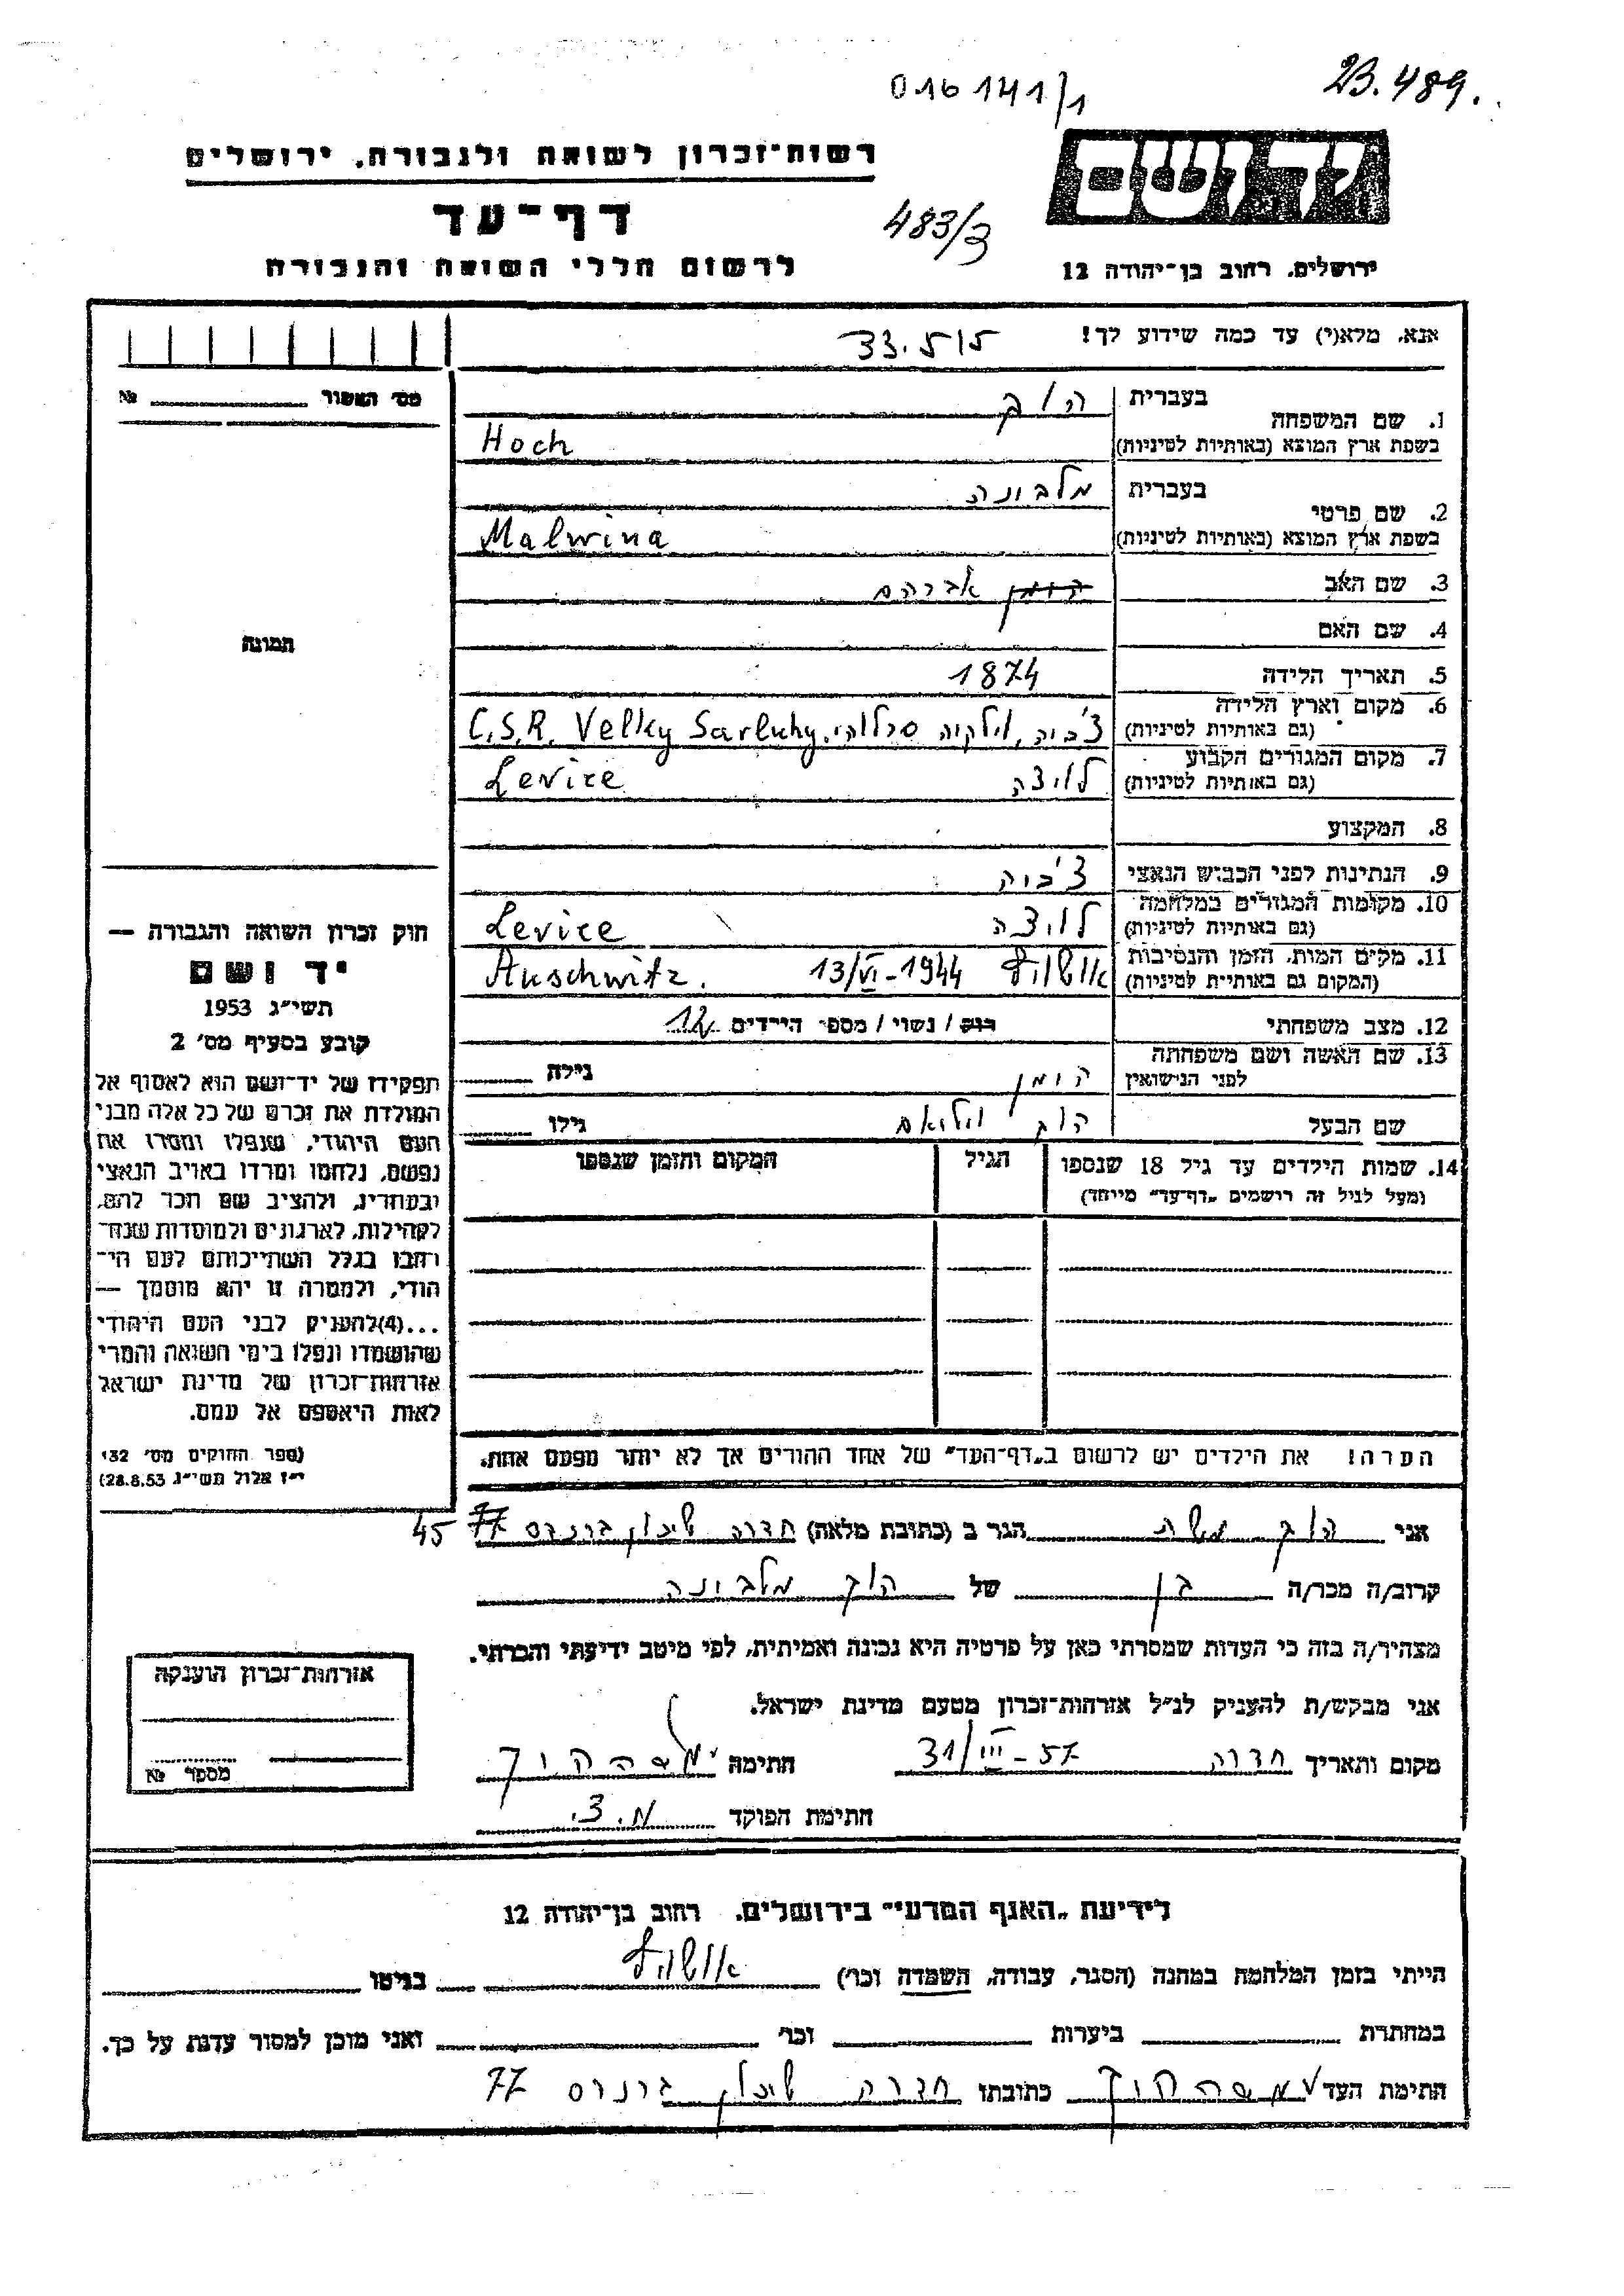 016141/1
23.489.
יד ושם
רשות־זכרון לשואה ולגבורה, ירושלים
דף־עד
483/3
לרשום חללי השואה והגבורה
ירושלים, רחוב בן־יהודה 12
אנא, מלא(י) עד כמה שידוע לך!
מס׳ האשור № 
תמונה
1. שם המשפחה
בעברית הוך
בשפת ארץ המוצא (באותיות לטיניות) Hoch
2. שם פרטי
בעברית מלבינה
בשפת ארץ המוצא (באותיות לטיניות) Malwina
3. שם האב הומן אברהם
4. שם האם
5. תאריך הלידה 1874
6. מקום וארץ הלידה
(גם באותיות לטיניות) צ׳כיה, וילקיה סרלוהי. C.S.R. Velky Sarluhy
7. מקום המגורים הקבוע
(גם באותיות לטיניות) לויצה Levice
8. המקצוע
9. הנתינות לפני הכבוש הנאצי צ׳כיה
10. מקומות המגורים במלחמה
(גם באותיות לטיניות) לויצה Levice
11. מקום המות, הזמן והנסיבות
(המקום גם באותיות לטיניות) אושוויץ 13/VI-1944 Auschwitz.
12. מצב משפחתי רוק / נשוי / מספר הילדים 12
13. שם האשה ושם משפחתה
לפני הנישואין הומן גילה
שם הבעל הוך וילאם גילו
14. שמות הילדים עד גיל 18 שנספו
(מעל לגיל זה רושמים „דף־עד״ מיוחד)
הגיל
המקום והזמן שנספו
הערה! את הילדים יש לרשום ב„דף־העד״ של אחד ההורים אך לא יותר מפעם אחת.
חוק זכרון השואה והגבורה —
יד ושם
תשי״ג 1953
קובע בסעיף מס׳ 2
תפקידו של יד־ושם הוא לאסוף אל
המולדת את זכרם של כל אלה מבני
העם היהודי, שנפלו ומסרו את
נפשם, נלחמו ומרדו באויב הנאצי
ובעוזריו, ולהציב שם וזכר להם,
לקהילות, לארגונים ולמוסדות שנח־
רבו בגלל השתייכותם לעם הי־
הודי, ולמטרה זו יהא מוסמך —
...(4)להעניק לבני העם היהודי
שהושמדו ונפלו בימי השואה והמרי
אזרחות־זכרון של מדינת ישראל
לאות היאספם אל עמם.
(ספר החוקים מס׳ 132
י״ז אלול תשי״ג 28.8.53)
אני הוך משה הגר ב (כתובת מלאה) חדרה שיכון ברנדס 77 45
קרוב/ה מכר/ה בן של הוך מלבינה
מצהיר/ה בזה כי העדות שמסרתי כאן על פרטיה היא נכונה ואמיתית, לפי מיטב ידיעתי והכרתי.
אני מבקש/ת להעניק לנ״ל אזרחות־זכרון מטעם מדינת ישראל.
מקום ותאריך חדרה 31/III-57 חתימה משה הוך
חתימת הפוקד מ.צ.
אזרחות־זכרון הוענקה
מספר №
לידיעת „האגף המדעי״ בירושלים, רחוב בן־יהודה 12
הייתי בזמן המלחמה במחנה (הסגר, עבודה, השמדה וכו׳) אושוויץ בגיטו
במחתרת ביערות וכו׳ ואני מוכן למסור עדות על כך.
חתימת העד משה הוך כתובתו חדרה שיכון ברנדס 77